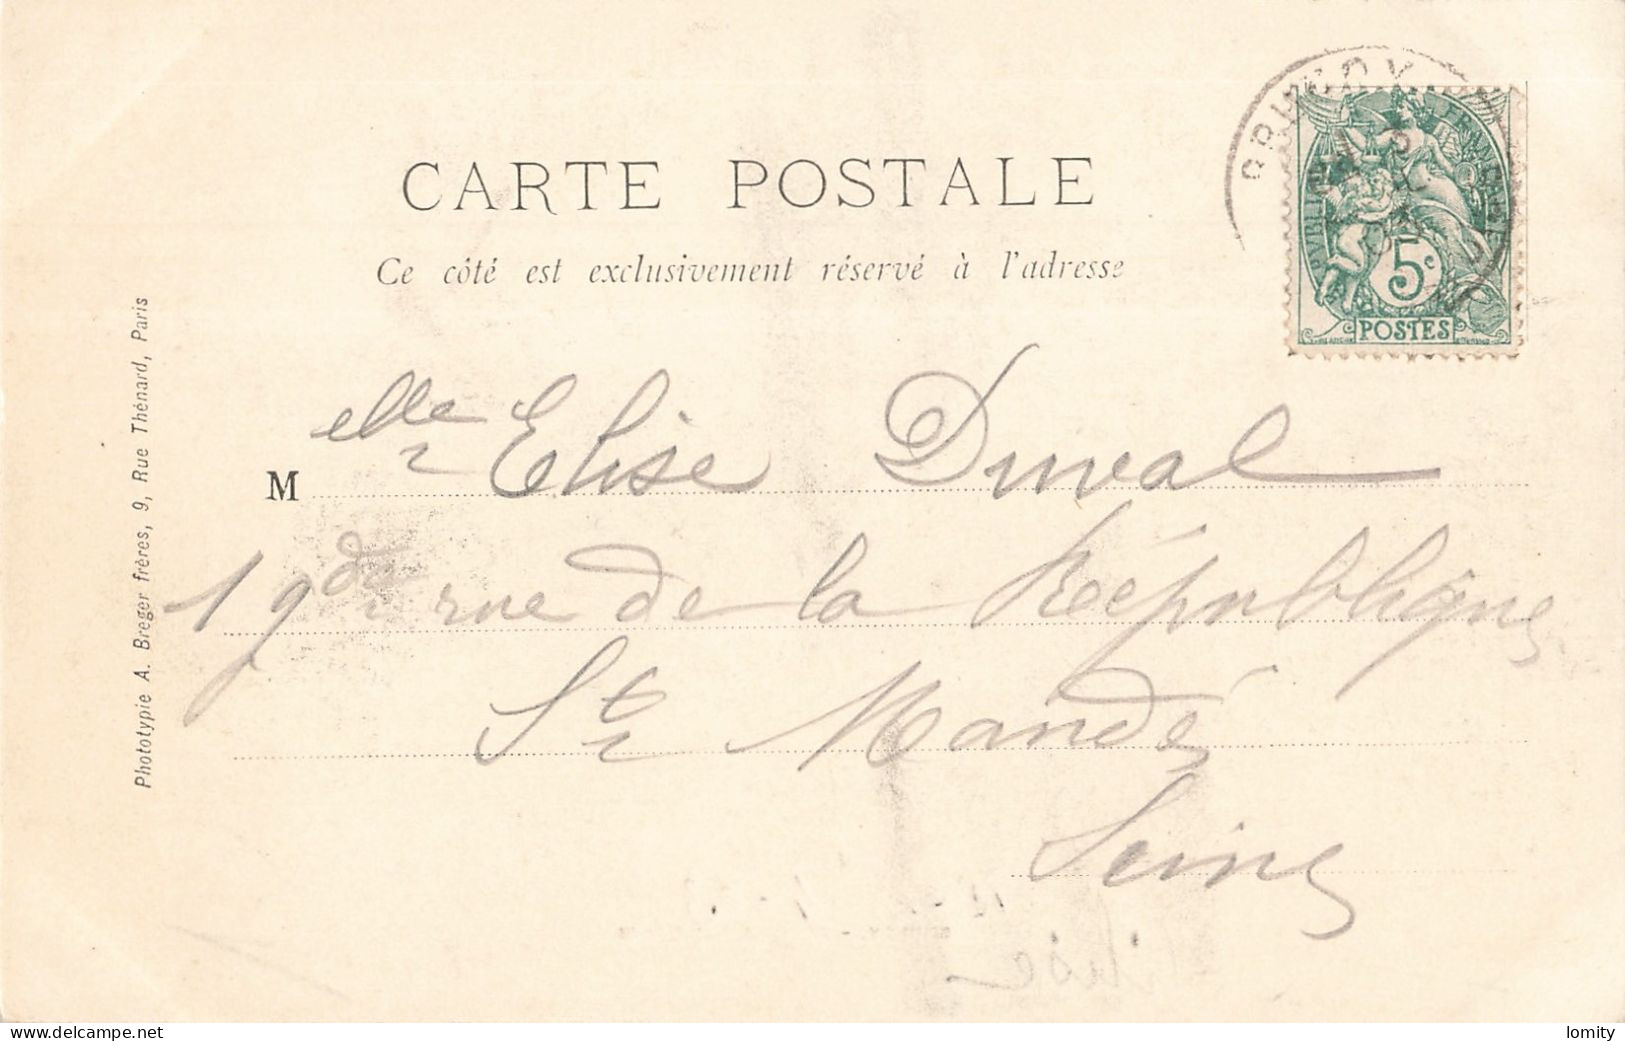 CARTE POSTALE
Ce côté est exclusivement réservé à l'adresse
5c
POSTES
M elle Elise Duval
19 rue de la République
St Mandé
Seine
Phototypie A. Breger frères, 9, Rue Thénard, Paris
www.delcampe.net
lomity